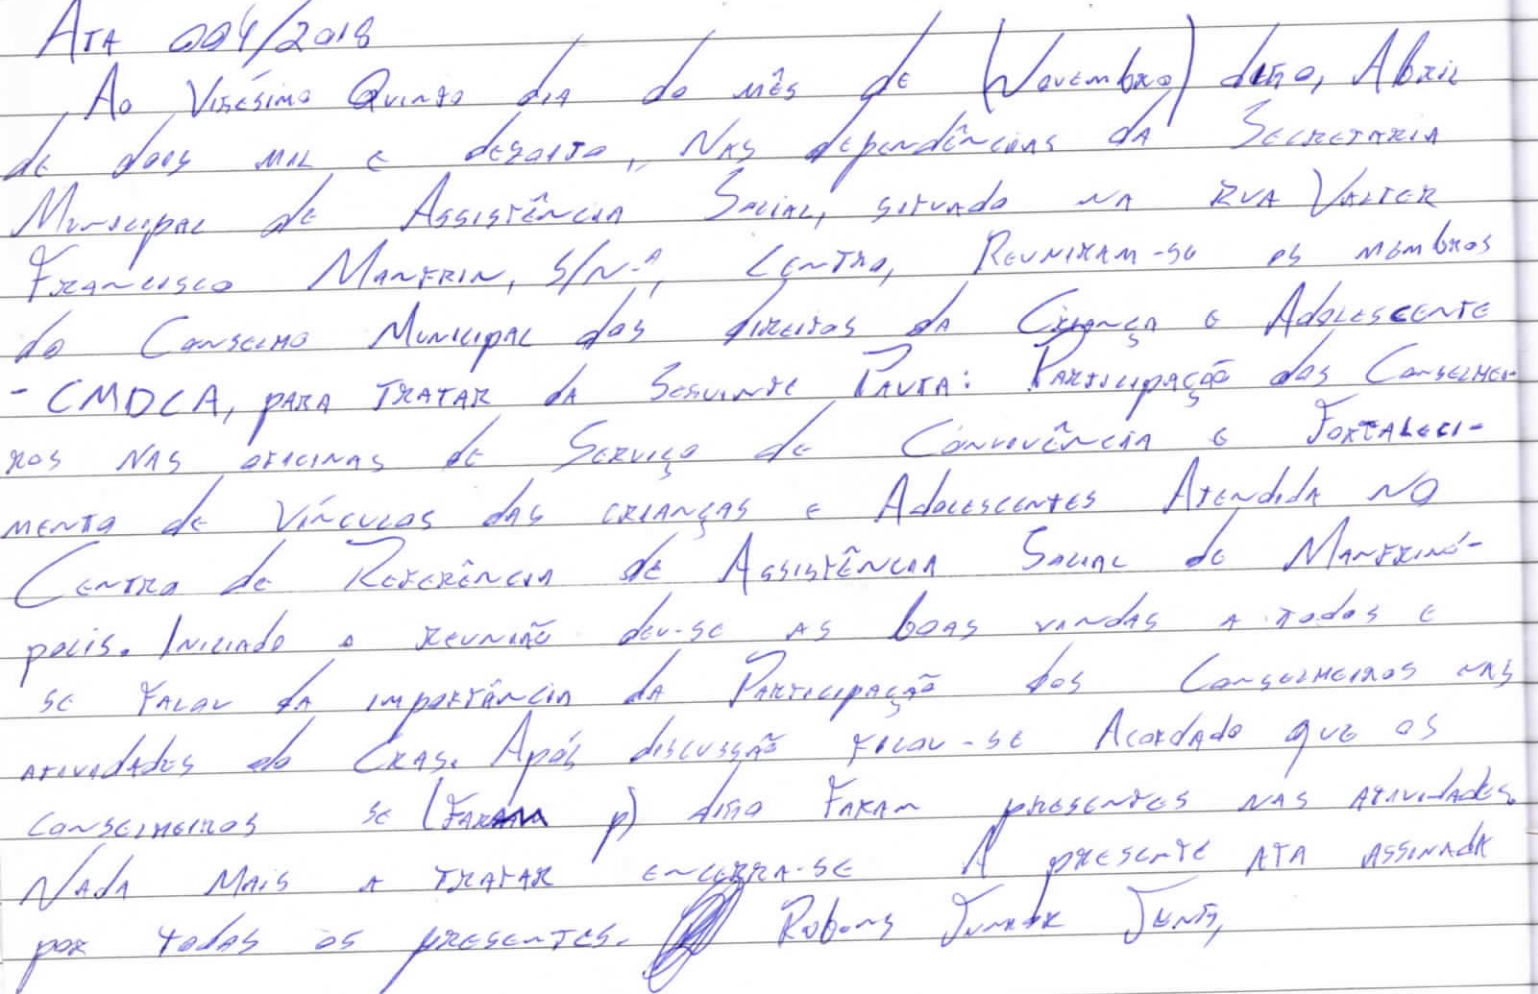 Ata 004/2018
Ao Vigésimo Quinto dia do mês de (Novembro) digo, Abril
de dois mil e dezoito, nas dependências da Secretaria
Municipal de Assistência Social, situado na Rua Valter
Francisco Manfrin, S/N.º, Centro, Reuniram-se os membros
do Conselho Municipal dos direitos da Criança e Adolescente
- CMDCA, para tratar da Seguinte Pauta: Participação dos Conselhei-
ros nas oficinas de Serviço de Convivência e Fortaleci-
mento de Vínculos das crianças e Adolescentes Atendida no
Centro de Referência de Assistência Social de Manfrinó-
polis. Iniciado a reunião deu-se as boas vindas a todos e
se falou da importância da Participação dos Conselheiros nas
atividades do Cras. Após discussão ficou-se Acordado que os
conselheiros se (Faram p) digo Faram presentes nas atividades.
Nada mais a tratar encerra-se A presente ata assinada
por todos os presentes.